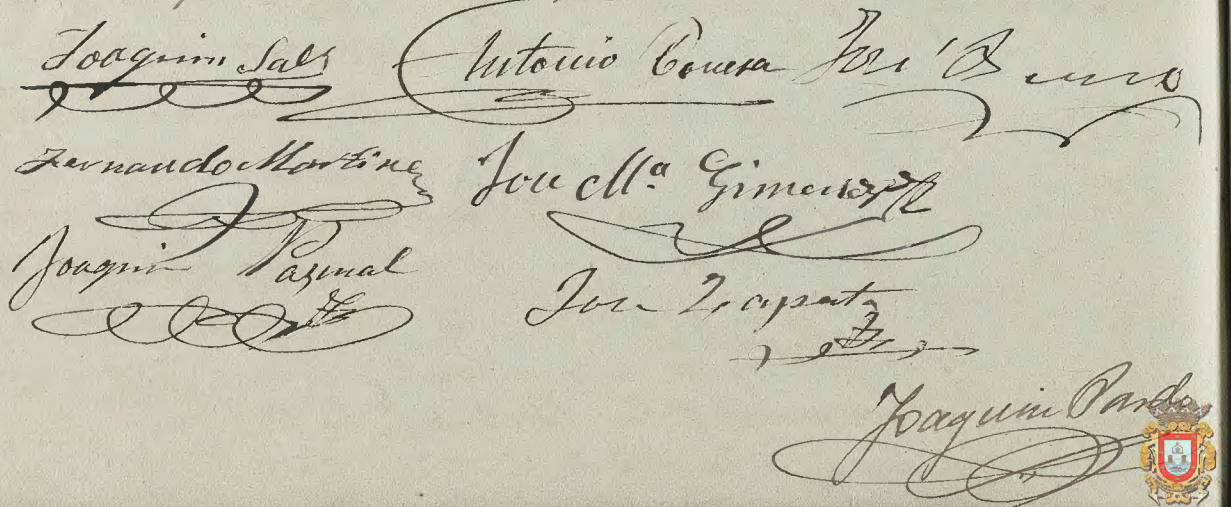 Joaquin Sals Antonio Conesa José
Fernando Martinez José Mª Gimenez
Joaquin Pasqual José Zapata
Joaquin Pardo